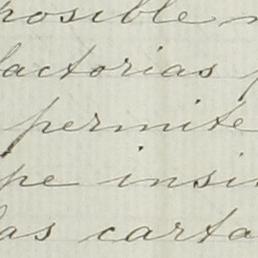 posible
factorias
permite
pe insi
las carta